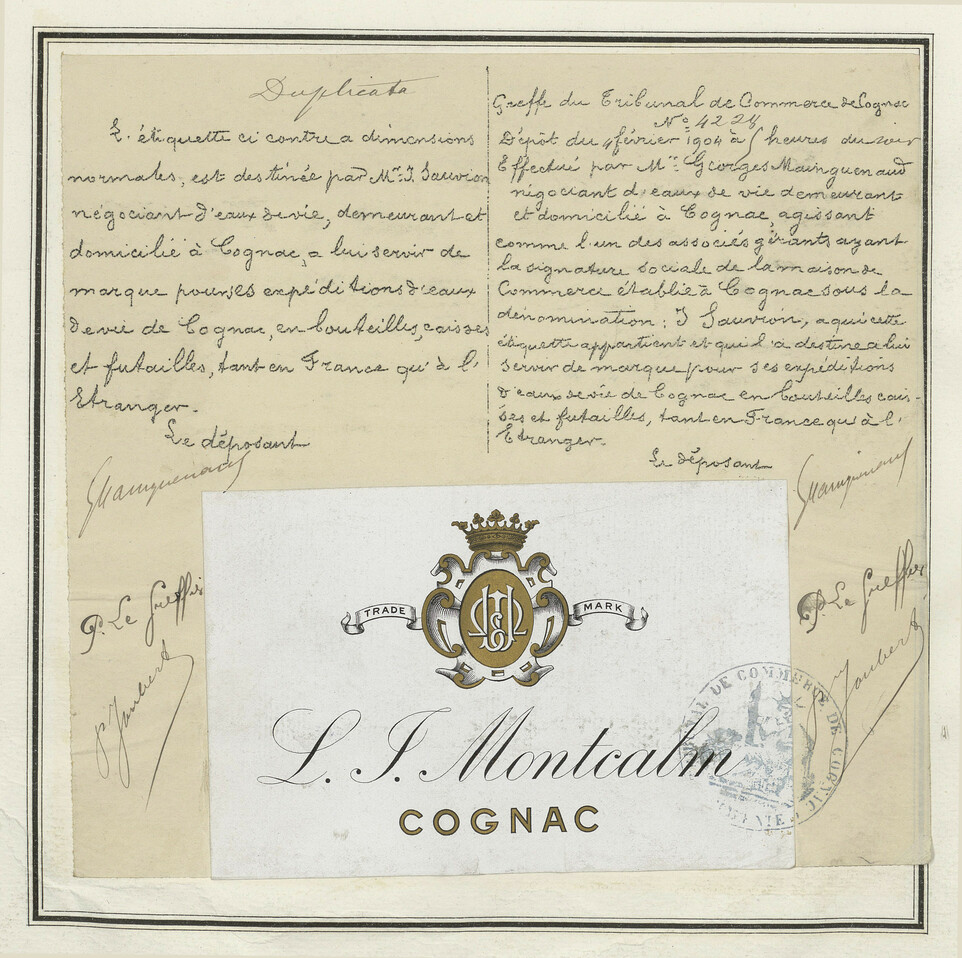 Duplicata
L'étiquette ci contre a dimensions
normales, est destinée par Mr. J. Sauvion
négociant d'eaux de vie, demeurant et
domicilié à Cognac, a lui servir de
marque pour ses expéditions d'eaux
de vie de Cognac, en bouteilles, caisses
et futailles, tant en France qu'à l'
Etranger.
Le déposant
GMainguenaud
P. Le Greffier
P Joubert
Greffe du Tribunal de Commerce de Cognac
No. 4228
Dépôt du 4 février 1904 à 5 heures du soir
Effectué par Mr. Georges Mainguenaud
négociant d'eaux de vie demeurant
et domicilié à Cognac, agissant
comme l'un des associés gérants ayant
la signature sociale de la maison de
Commerce établie à Cognac sous la
dénomination: J Sauvion, a qui cette
étiquette appartient et qui l'a destine a lui
servir de marque pour ses expéditions
d'eaux de vie de Cognac en bouteilles cais-
ses et futailles, tant en France qu'à l'
Etranger.
Le déposant
GMainguenaud
P. Le Greffier
Joubert
TRADE MARK
L. J. Montcalm
COGNAC
DE COMMERCE DE COGNAC